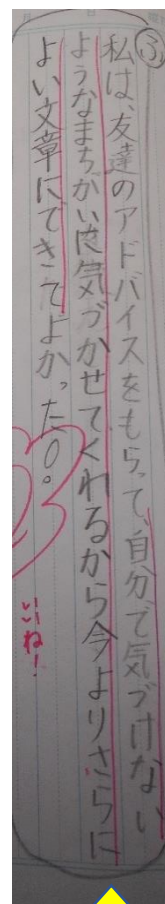 ふ
私は、友達のアドバイスをもらって、自分で気づけない
ようなまちがいに気づかせてくれるから今よりさらに
よい文章にできてよかった。
いいね!